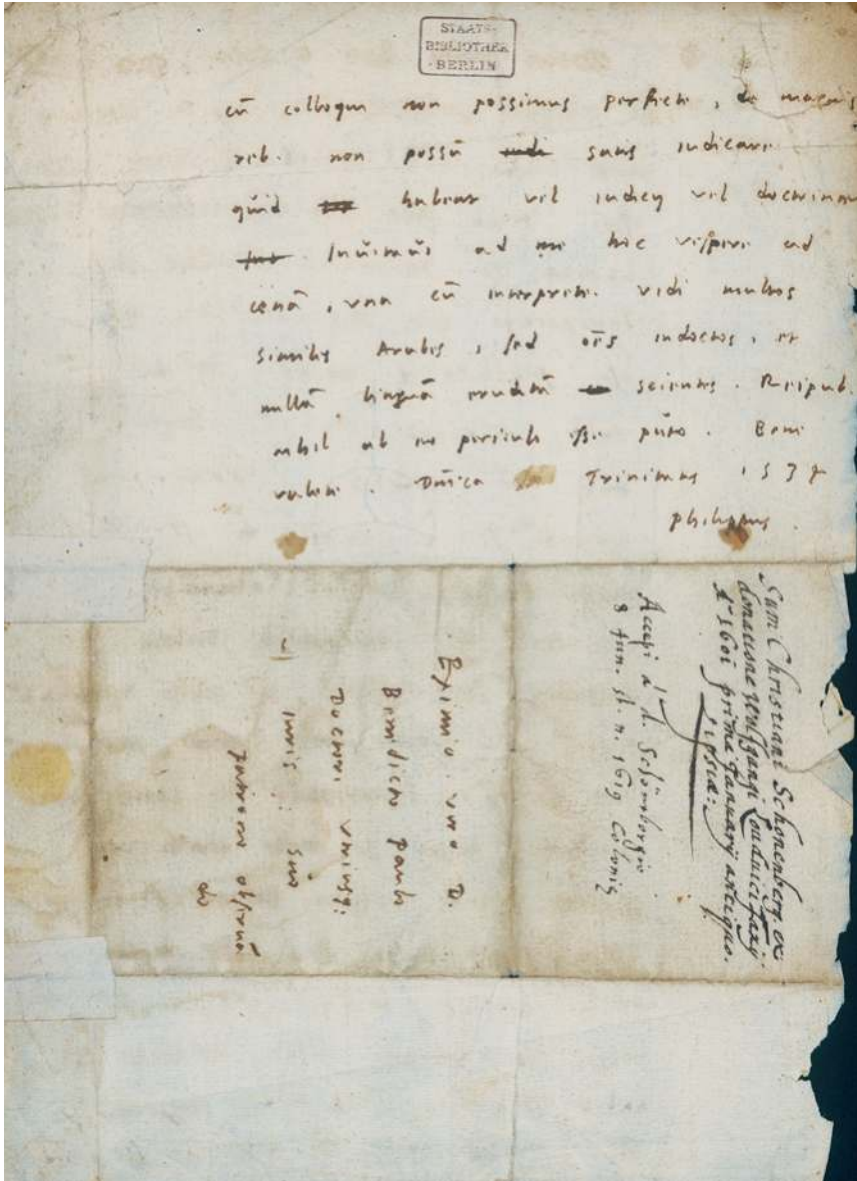 STAATS-
BIBLIOTHEK
· BERLIN ·
cū colloqui non possimus perfecte, de magnis
reb. non possū satis iudicare
quid habeat vel iudicij vel doctrinae
Inuitauī ad me hoc vesperi ad
cenā, vna cū interprete. vidi multos
similes Arabes, sed oēs indoctos, et
nullā linguā eruditā scientes. Reipub.
nihil ab eo periculi esse puto. Bene
valete. Dnica Trinitatis 1537
philippus.
Sum Christiani Schonenberg. ex
donatione Wulfgangi Louduici
Aō 1601 prima January antiquo.
Lipsia:
Accepi à h. Schömbergio
8 Jun. st. n. 1619 Coloniæ
Eximio viro D.
Benedicto pauli
Doctori vtriusq;
iuris: suo
patrono obseruā
do